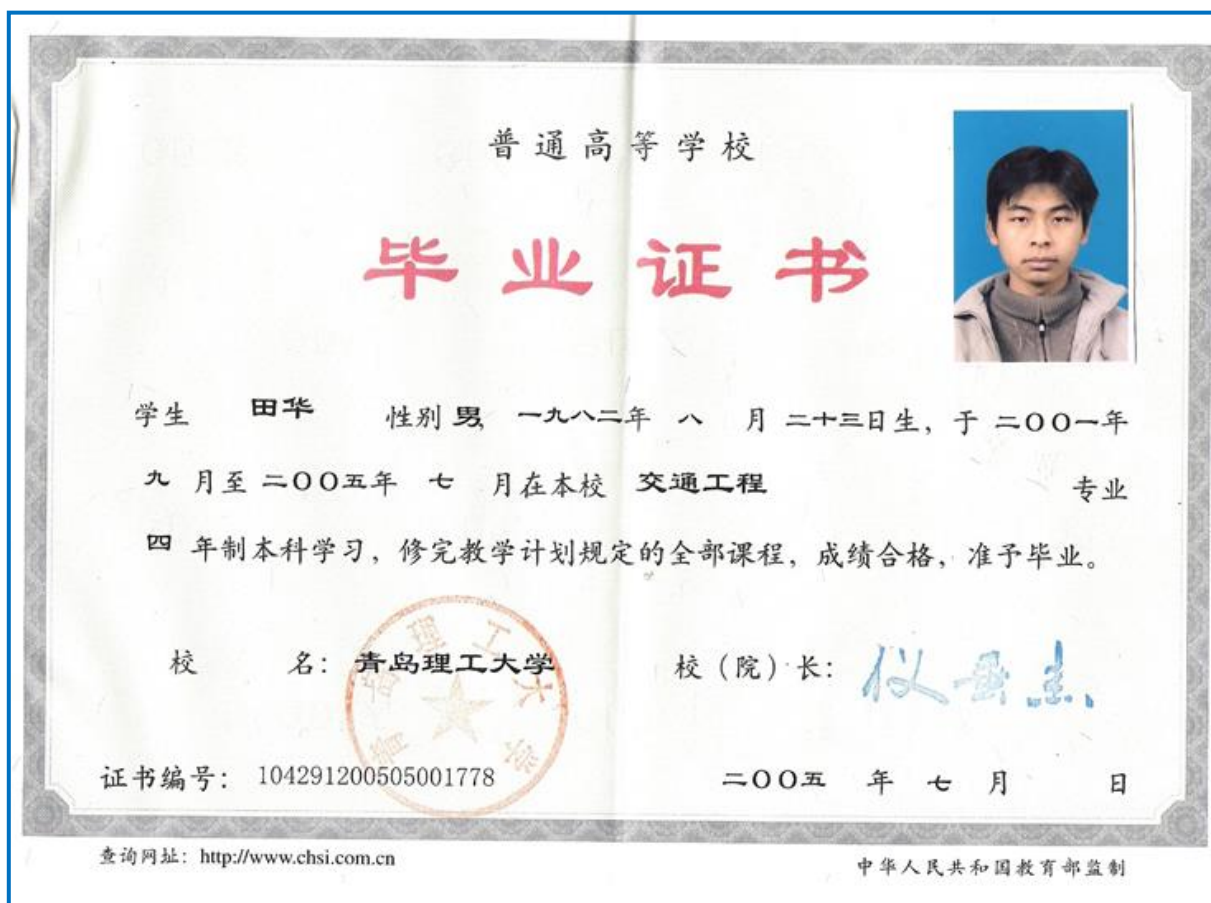 普通高等学校
毕业证书
学生 田华 性别 男, 一九八二年 八 月 二十三日生, 于 二〇〇一年
九 月至 二〇〇五年 七 月在本校 交通工程 专业
四 年制本科学习, 修完教学计划规定的全部课程, 成绩合格, 准予毕业。
校 名: 青岛理工大学 校(院)长: 仪垂杰
青岛理工大学
证书编号: 104291200505001778 二〇〇五 年 七 月 日
查询网址: http://www.chsi.com.cn 中华人民共和国教育部监制